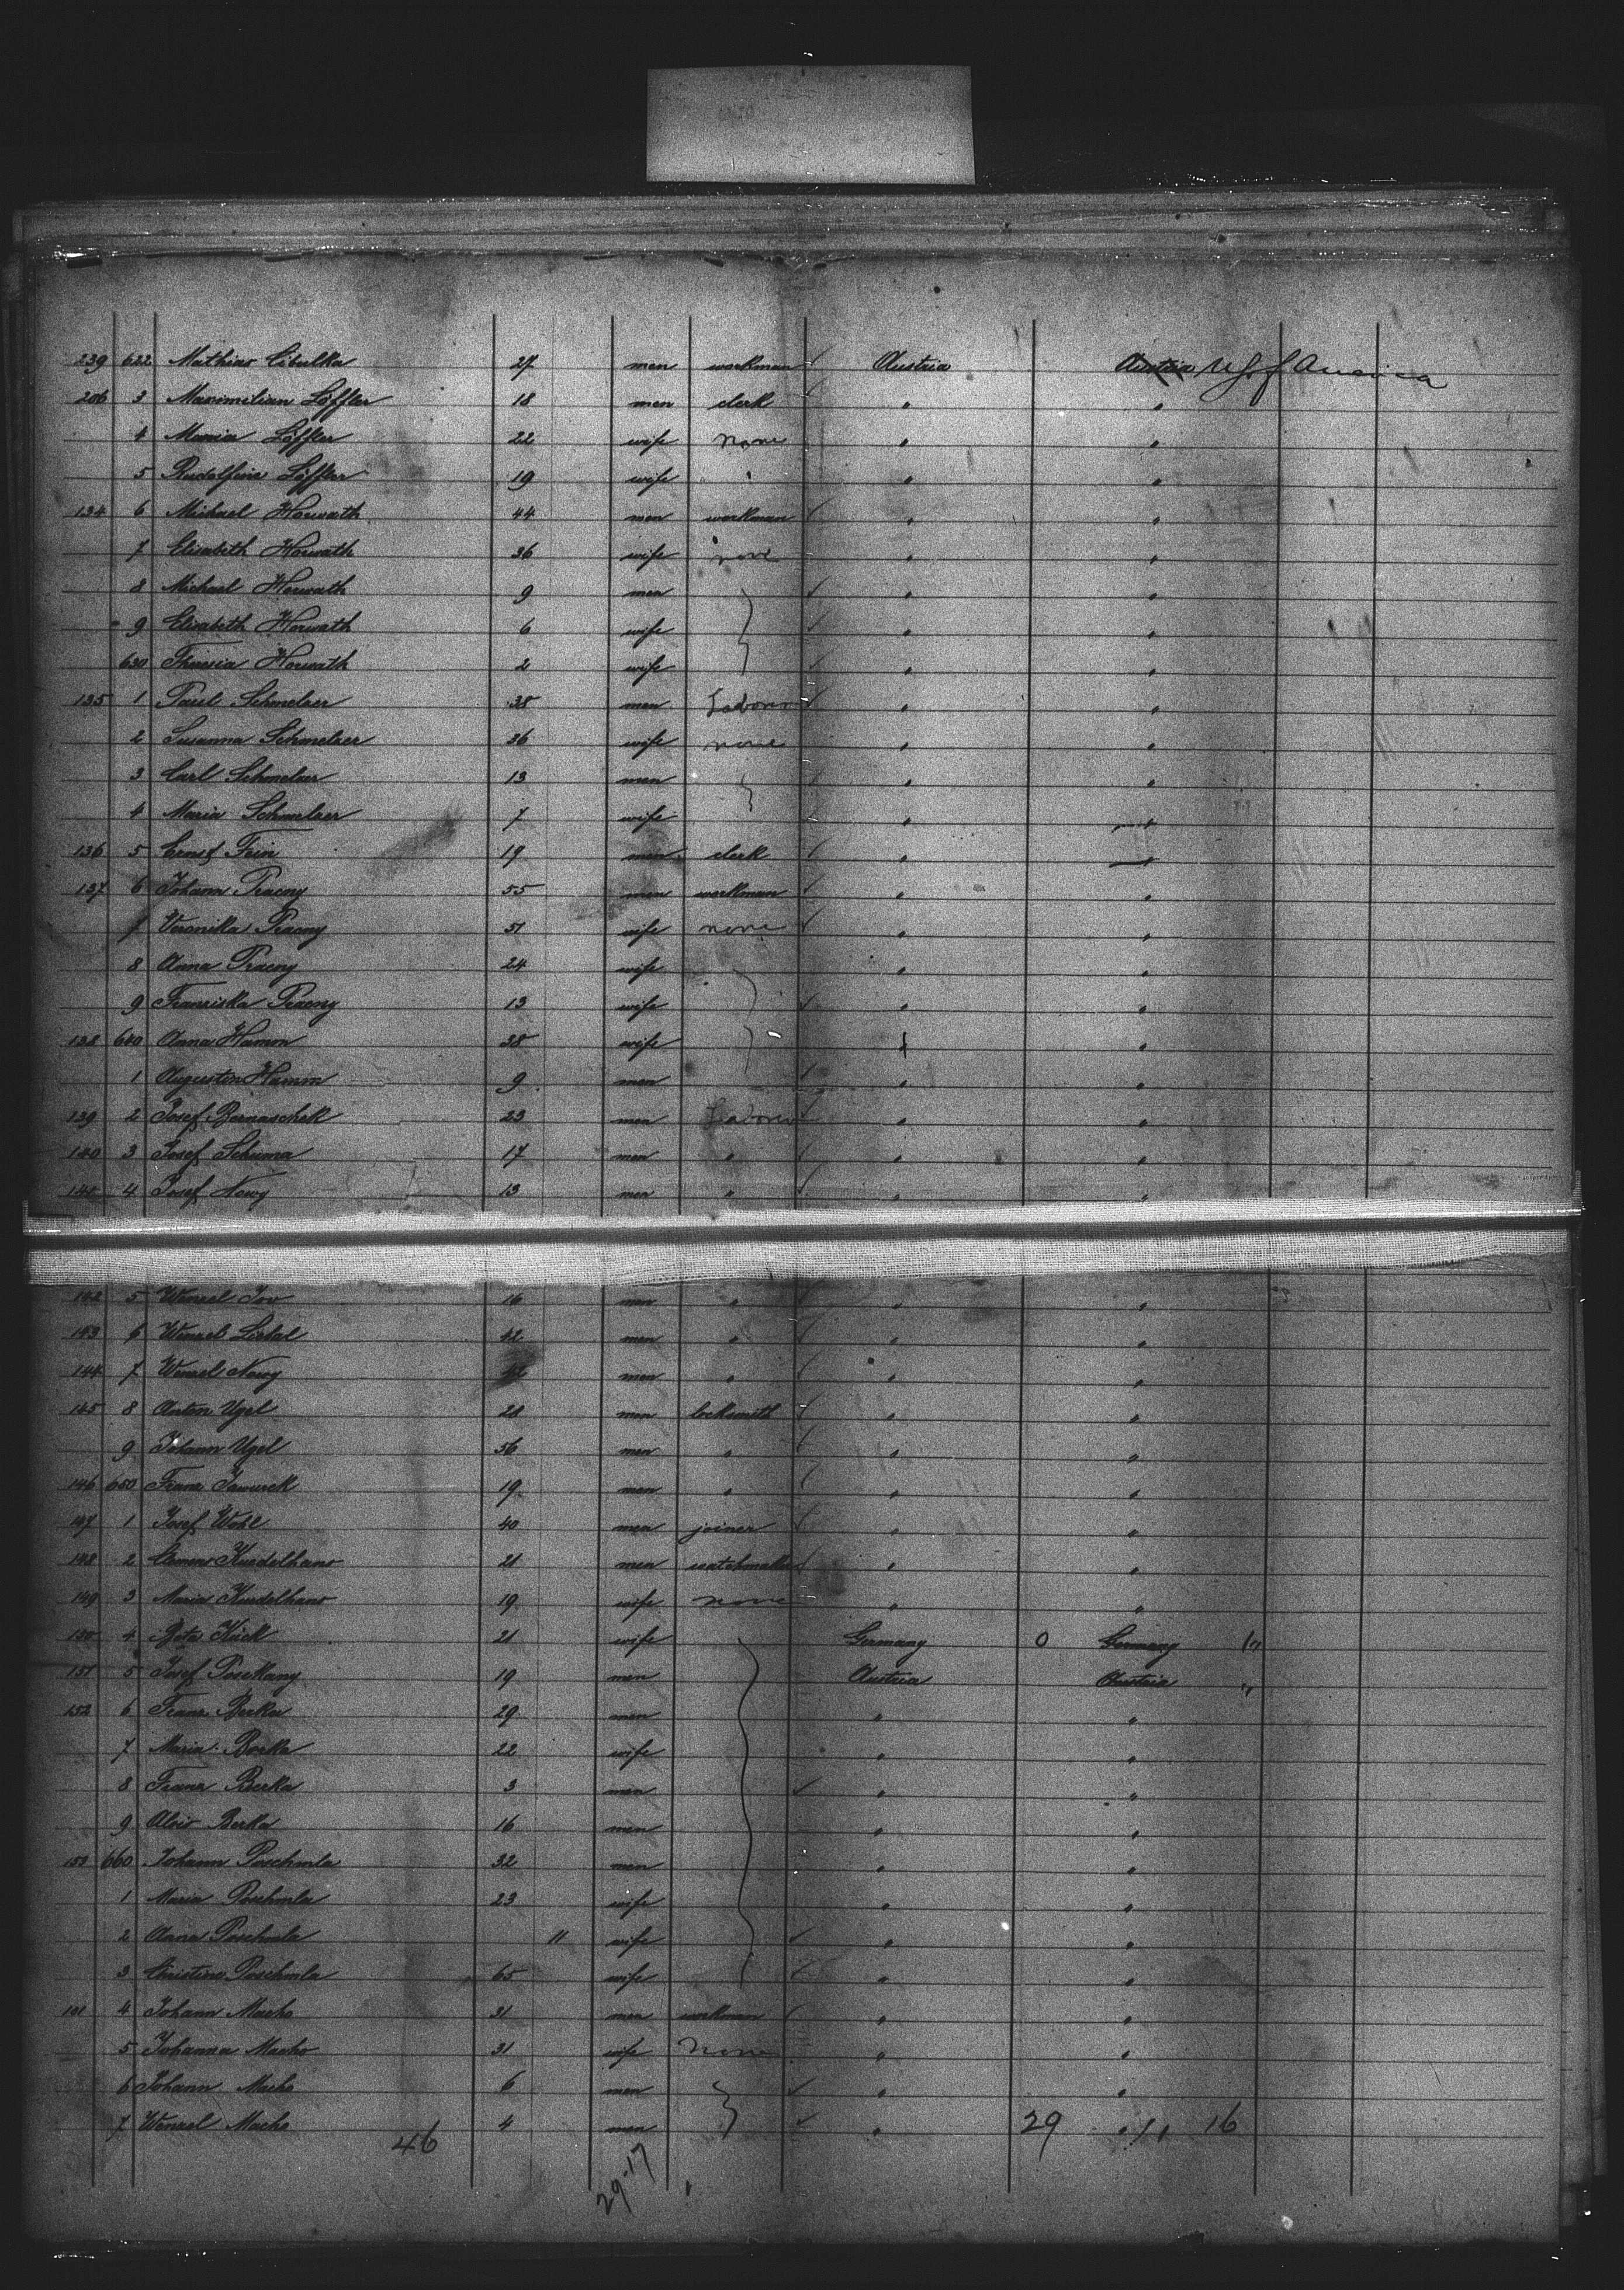 239 622 Mathias Cibulka 27 men workman Austria Austria U S of America
206 3 Maximilian Löffler 18 men clerk " "
4 Maria Löffler 22 wife none " "
5 Rudolfine Löffler 19 wife " " "
134 6 Michael Horwath 44 men workman " "
7 Elisabeth Horwath 36 wife none " "
8 Michael Horwath 9 men " "
9 Elisabeth Horwath 6 wife " "
630 Theresia Horwath 2 wife " "
135 1 Paul Schmelzer 38 men Laborer " "
2 Susanna Schmelzer 36 wife none " "
3 Carl Schmelzer 13 men " "
4 Maria Schmelzer 7 wife " "
136 5 Ernst Fein 19 men clerk " "
137 6 Johann Pracny 55 men workman " "
7 Veronika Pracny 51 wife none " "
8 Anna Pracny 24 wife " "
9 Franziska Pracny 13 wife " "
138 640 Anna Hamm 38 wife " "
1 Augustin Hamm 9 men " "
139 2 Josef Bernaschek 23 men Laborer " "
140 3 Josef Schuma 17 men " " "
141 4 Josef Nowy 13 men " " "
142 5 Wenzel 16 men " " "
143 6 Wenzel 42 men " " "
144 7 Wenzel Nowy men " " "
145 8 Anton Ugel 28 men locksmith " "
9 Johann Ugel 56 men " " "
146 650 Franz 19 men " " "
147 1 Josef Wohl 40 men joiner " "
148 2 Clemens Kudelhans 21 men watchmaker " "
149 3 Maria Kudelhans 19 wife none " "
150 4 Beta Kück 21 wife Germany 0 Germany "
151 5 Josef 19 men Austria Austria "
152 6 Franz Berka 29 men " "
7 Maria Berka 22 wife " "
8 Franz Berka 3 men " "
9 Alois Berka 16 men " "
153 660 Johann Poschmla 32 men " "
1 Maria Poschmla 23 wife " "
2 Anna Poschmla 11 wife " "
3 Christine Poschmla 65 wife " "
191 4 Johann Macho 31 men workman " "
5 Johanna Macho 31 wife None " "
6 Johann Macho 6 men " "
7 Wenzel Macho 4 men " 29 " 16
46
29-17